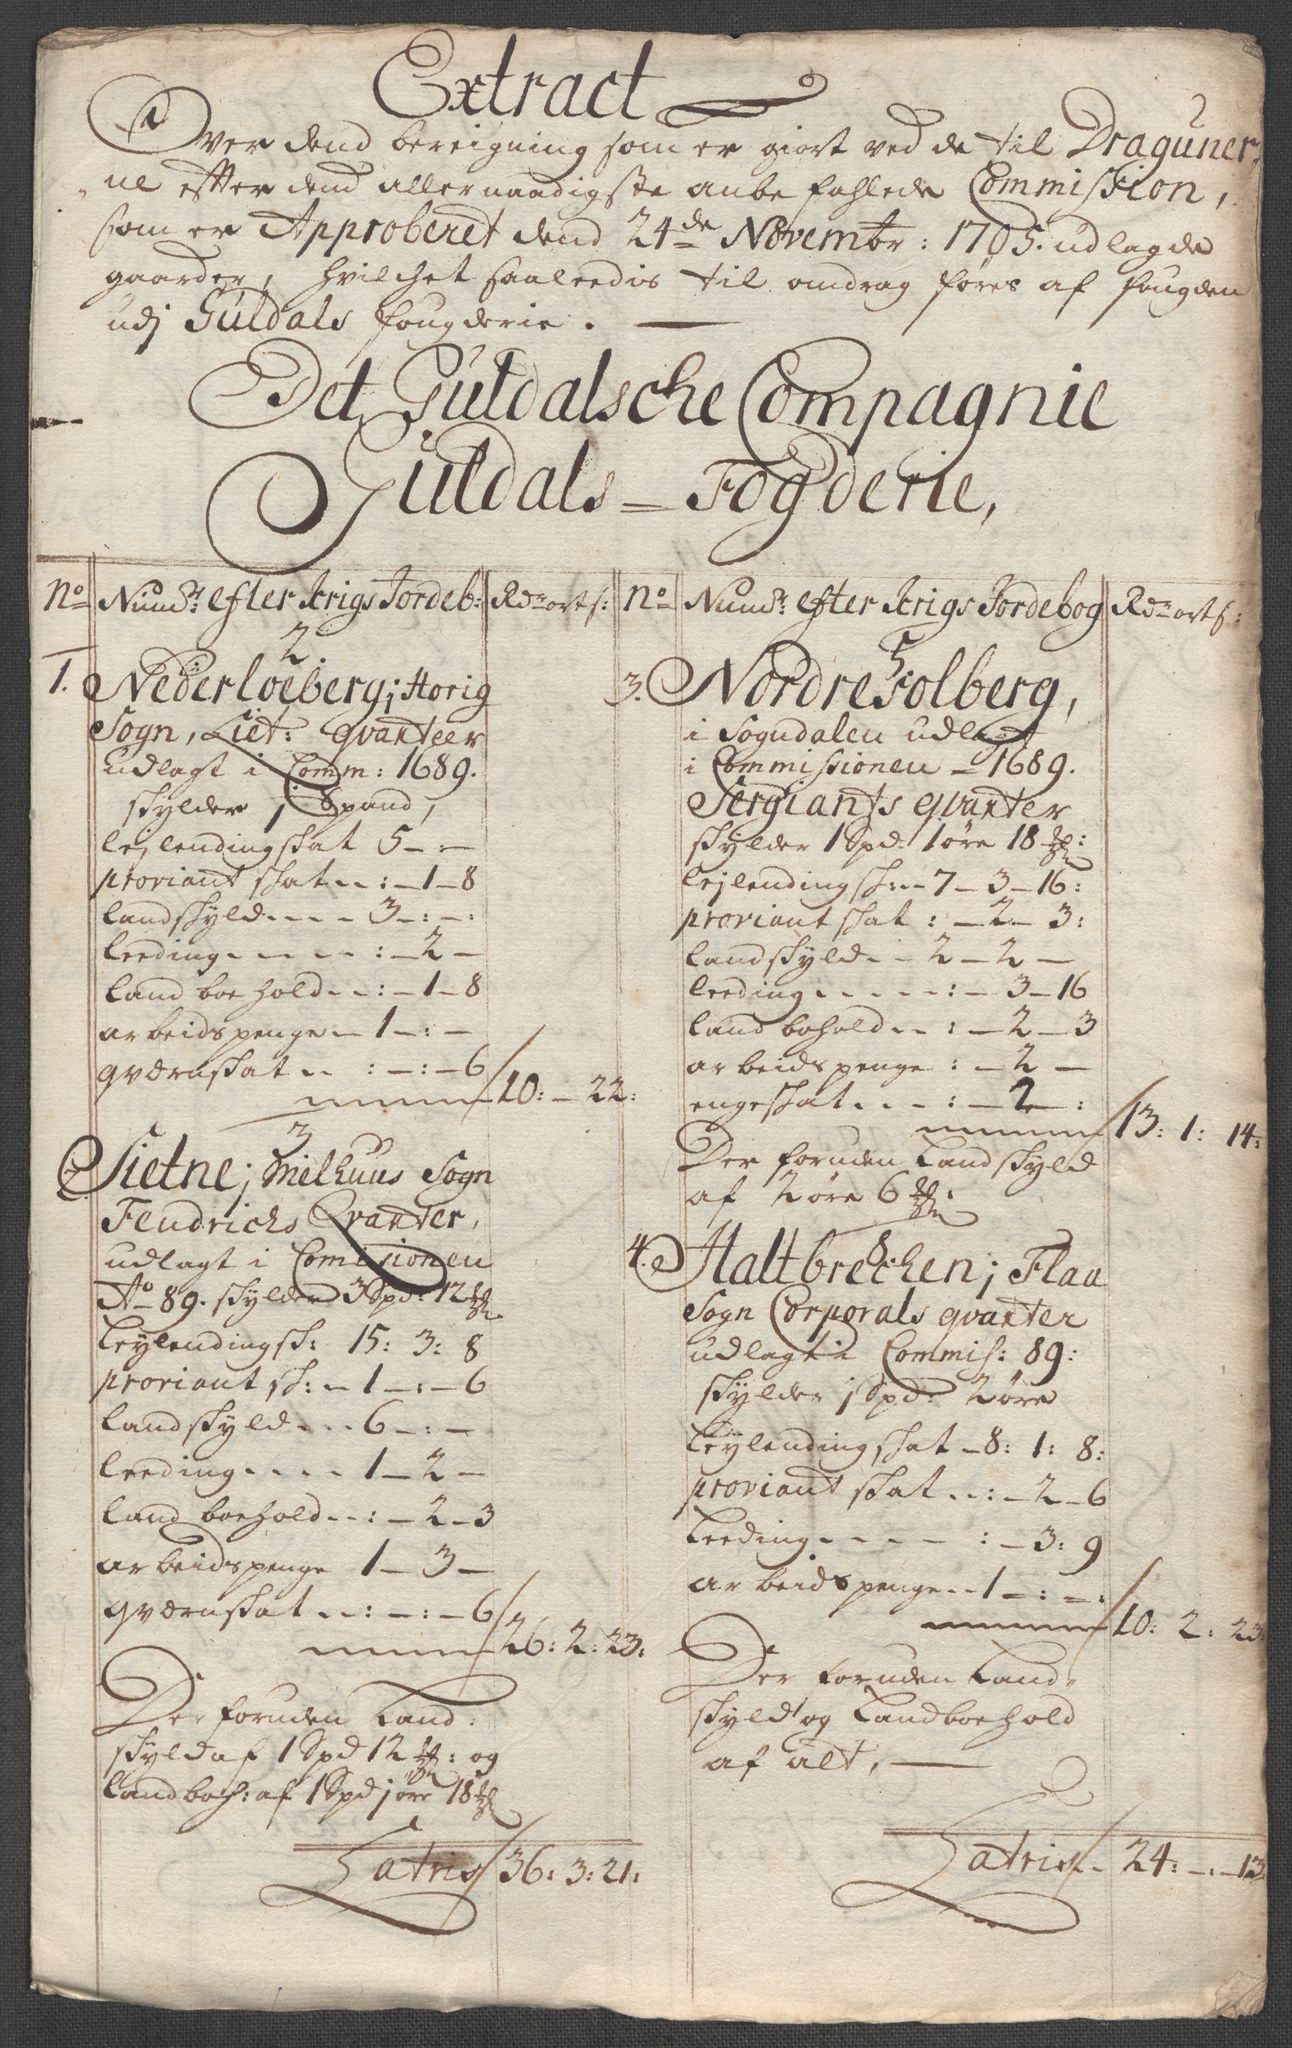 Extract
Over dend bereigning som er giort ved de til Draguner,,
,,ne efter dend allernaadigste anbefahlede Commission,
som er Approberet dend 24de Novembr: 1705. udlagde
gaarder, hvilchet saaleedis til omdrag føres af fougden
udj Guldals fougderie.
Det Guldalsche Compagnie
Guldals = Fogderie,
No Numr: efter Krigs Jordeb: Rdr ort s:
2.
1. Nederloeberg; Horig
Sogn, Liet: qvarteer
udlagt i Comm: 1689.
skylder j Spand,
lejlendingskat 5 - : -
proviant skat . . : - 1 - 8
landskyld . . . . 3 - : - :
leeding . . . . . : - 2 -
landboehold . . : - 1 - 8
arbeidspenge - 1 - : -
qvernskat . . : - : - 6
10: - 22:
3
2. Sietne; Melhuus Sogn
Fendrichs Qvarter,
udlagt i Comisionen
Ao 89. skylder 3 Spd: 12 ℔
Leylendingsk: 15: 3: 8
proviant sk: - 1 - : - 6
landskyld . . . 6 - : -
leeding . . . . 1 - 2 -
landboehold . . : - 2 - 3
arbeidspenge 1 - 3 -
qvernskat . . : - : - 6
26: 2: 23:
Der foruden Land:
skyld af 1 Spd 12 ℔: og
Landboh: af 1 Spd j øre 18 ℔
Latris 36: 3: 21:
No Numr: efter Krigs Jordebog Rdr ort s:
5
3. Nordre Folberg,
i Sogndalen udlagt
i Commissionen - 1689.
Sergiants qvarter
skylder 1 Spd: 1 øre 18 ℔:
Lejlendingsk: - 7 - 3 - 16:
proviant skat : - 2 - 3:
landskyld . . 2 - 2 -
leeding . . . . . : - 3 - 16
landbohold . . : - 2 - 3
arbeidspenge : - 2 -
engeskat . . . : - 2 - :
13: 1: 14:
Der foruden Landskyld
af 2 øre 6 ℔:
8
4. Haltbrechen; Flaa
Sogn Corporals qvarter
udlagt i Commis: 89:
skylder j Spd: 2 øre
Leylendingskat - 8: 1: 8:
proviant skat . . : - 2 - 6
Leeding . . . . : - 3: 9
arbeidspenge . . 1 - : - :
10: 2: 23:
Der foruden Land,,
skyld og Landboehold
af alt,
Latris . 24: - : - 13